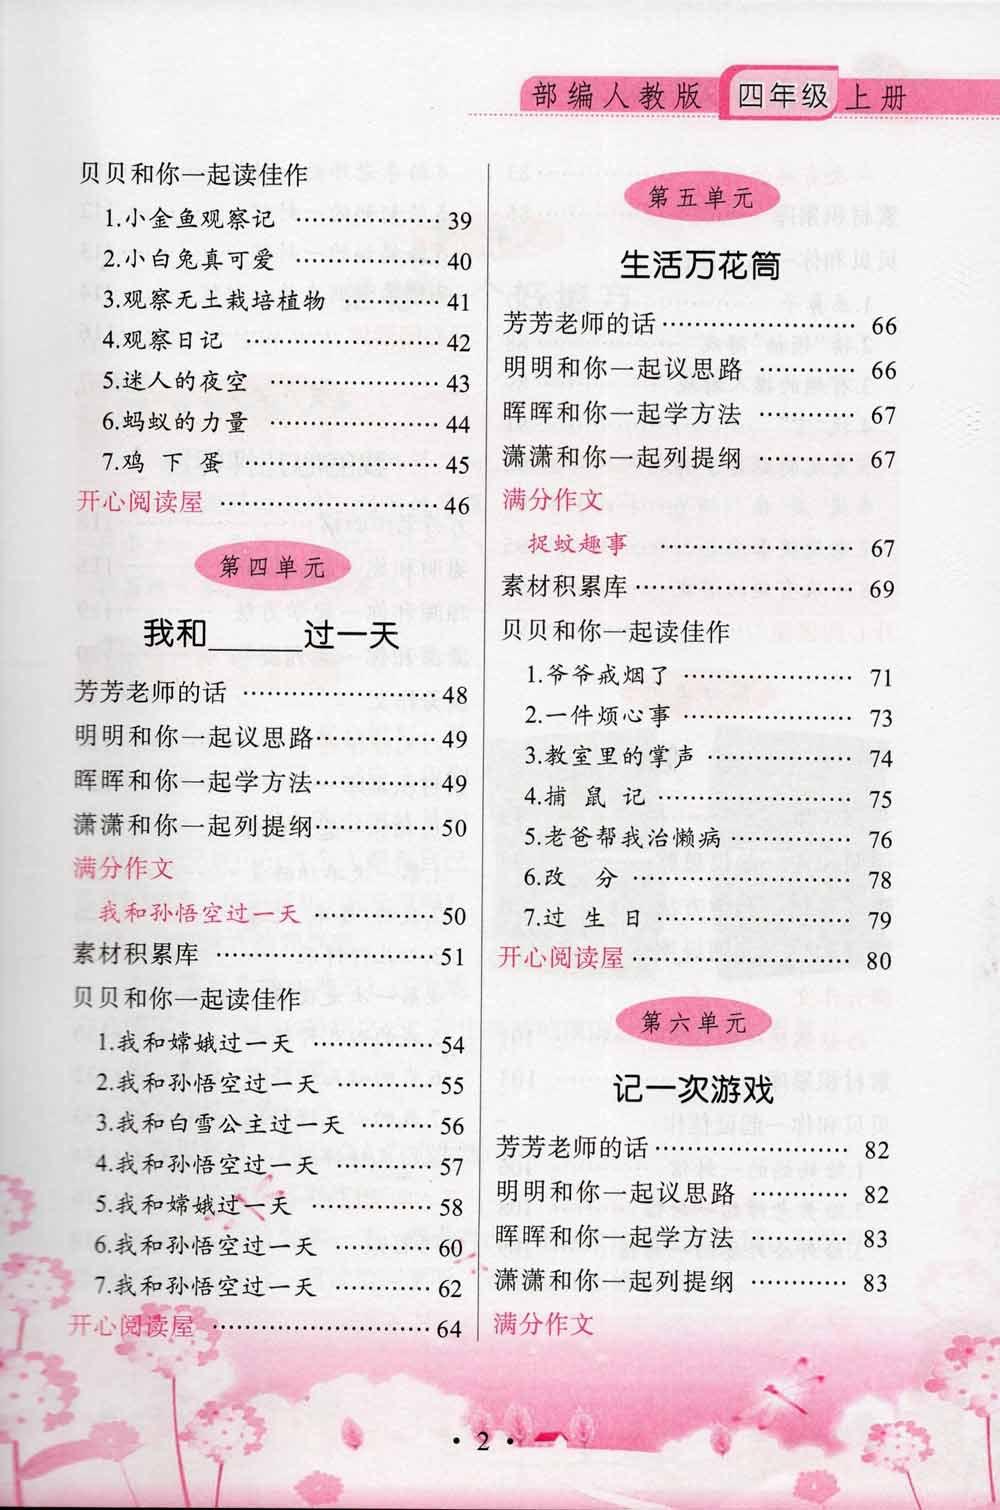 部编人教版 四年级 上册
贝贝和你一起读佳作
1.小金鱼观察记 ………………… 39
2.小白兔真可爱 ………………… 40
3.观察无土栽培植物 …………… 41
4.观察日记 ……………………… 42
5.迷人的夜空 …………………… 43
6.蚂蚁的力量 …………………… 44
7.鸡 下 蛋 ……………………… 45
开心阅读屋 ……………………… 46
第四单元
我和______过一天
芳芳老师的话 …………………… 48
明明和你一起议思路…………… 49
晖晖和你一起学方法…………… 49
潇潇和你一起列提纲…………… 50
满分作文
我和孙悟空过一天 …………… 50
素材积累库 ……………………… 51
贝贝和你一起读佳作
1.我和嫦娥过一天 ……………… 54
2.我和孙悟空过一天 …………… 55
3.我和白雪公主过一天 ………… 56
4.我和孙悟空过一天 …………… 57
5.我和嫦娥过一天 ……………… 58
6.我和孙悟空过一天 …………… 60
7.我和孙悟空过一天 …………… 62
开心阅读屋 ……………………… 64
第五单元
生活万花筒
芳芳老师的话…………………… 66
明明和你一起议思路 ………… 66
晖晖和你一起学方法 ………… 67
潇潇和你一起列提纲 ………… 67
满分作文
捉蚊趣事 ……………………… 67
素材积累库……………………… 69
贝贝和你一起读佳作
1.爷爷戒烟了 …………………… 71
2.一件烦心事 …………………… 73
3.教室里的掌声 ………………… 74
4.捕 鼠 记 ……………………… 75
5.老爸帮我治懒病……………… 76
6.改 分 ………………………… 78
7.过 生 日 ……………………… 79
开心阅读屋……………………… 80
第六单元
记一次游戏
芳芳老师的话…………………… 82
明明和你一起议思路 ………… 82
晖晖和你一起学方法 ………… 83
潇潇和你一起列提纲 ………… 83
满分作文
· 2 ·